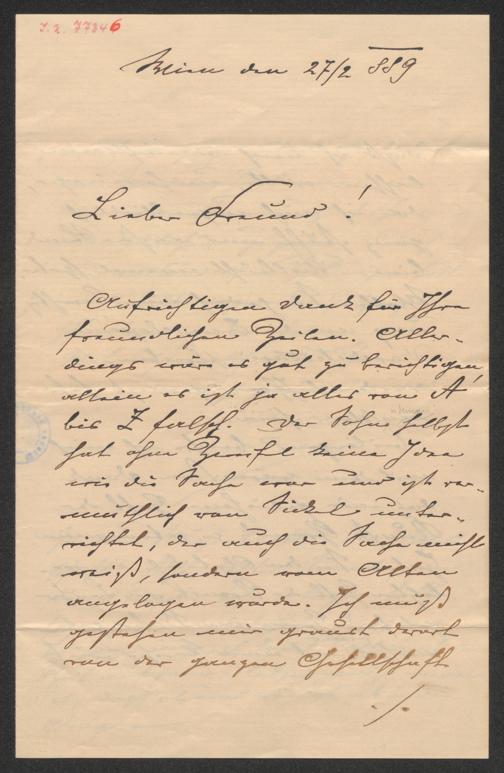 I. N. 77346
Wien den 27/2 889
Lieber Freund!
Aufrichtigen Dank für Ihre
freundlichen Zeilen. Aller-
dings wäre es gut zu berichtigen,
allein es ist ja alles von A
bis Z falsch. Der Sohn selbst
hat ohne Zweifel keine Idee
wie die Sache war und ist ver-
muthlich von Sickel unter-
richtet, der auch die Sache nicht
weiß, sondern vom Alten
angelogen wurde. Ich muß
gestehen mir graust derart
von der ganzen Gesellschaft
./.